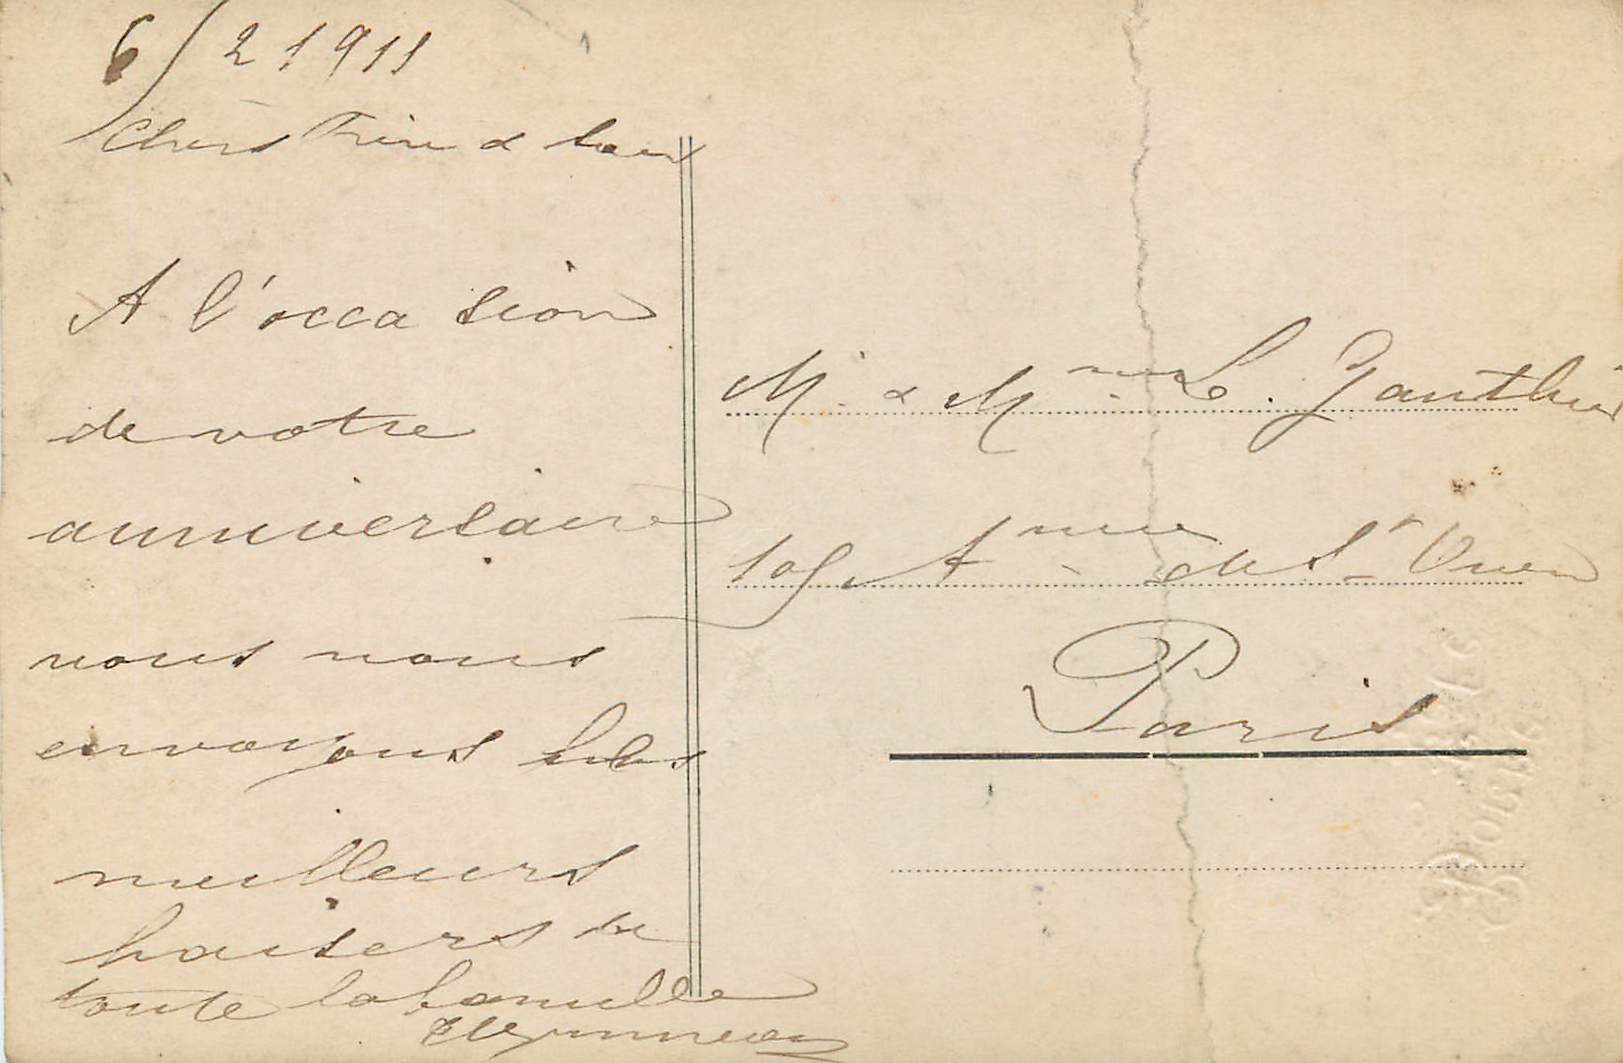 6/2 1911
Chers Frère & Sœur
A l'occasion
de votre
anniversaire
nous vous
envoyons les
meilleurs
baisers de
toute la famille
M. & Mme L. Gauthier
Anue de St Ouen
Paris